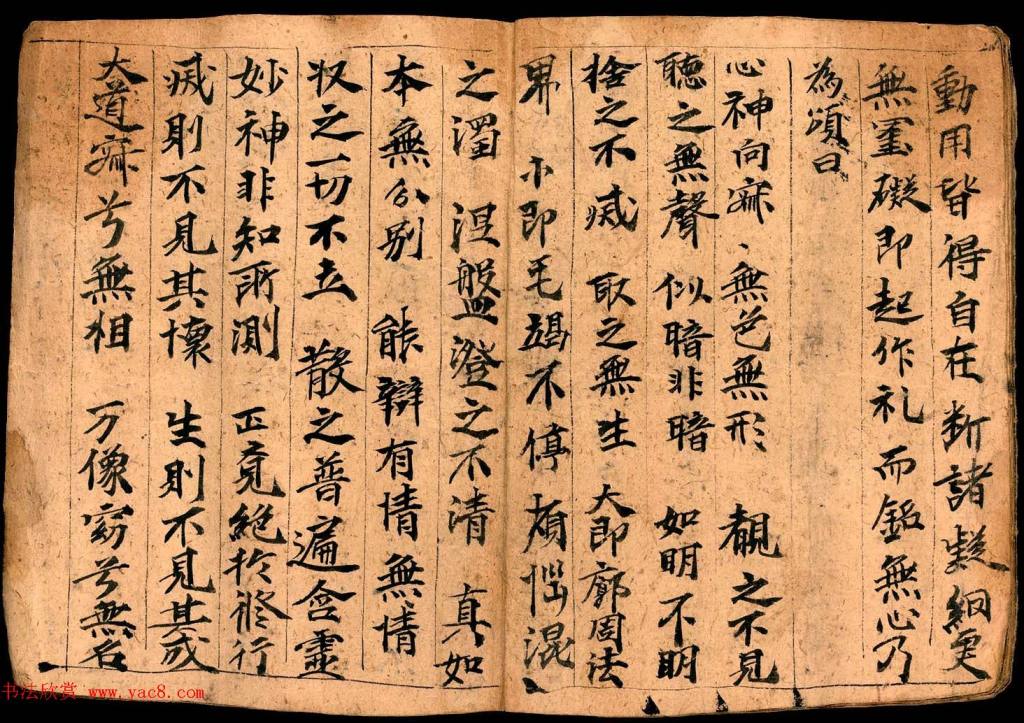 動用皆得自在断諸疑網更
無罣礙即起作礼而銘無心乃
為頌曰
心神向寂、無色無形　覩之不見
聽之無聲　似暗非暗　如明不明
捨之不滅　取之無生　大即廓周法
界　小即毛竭不停　煩惱混
之濁　涅盤澄之不清　真如
本無分別　能辯有情無情
收之一切不立　散之普遍含靈
妙神非知所測　正覓絕扵修行
滅則不見其懷　生則不見其成
大道寂兮無相　万像窈兮無名
书法欣赏 www.yac8.com